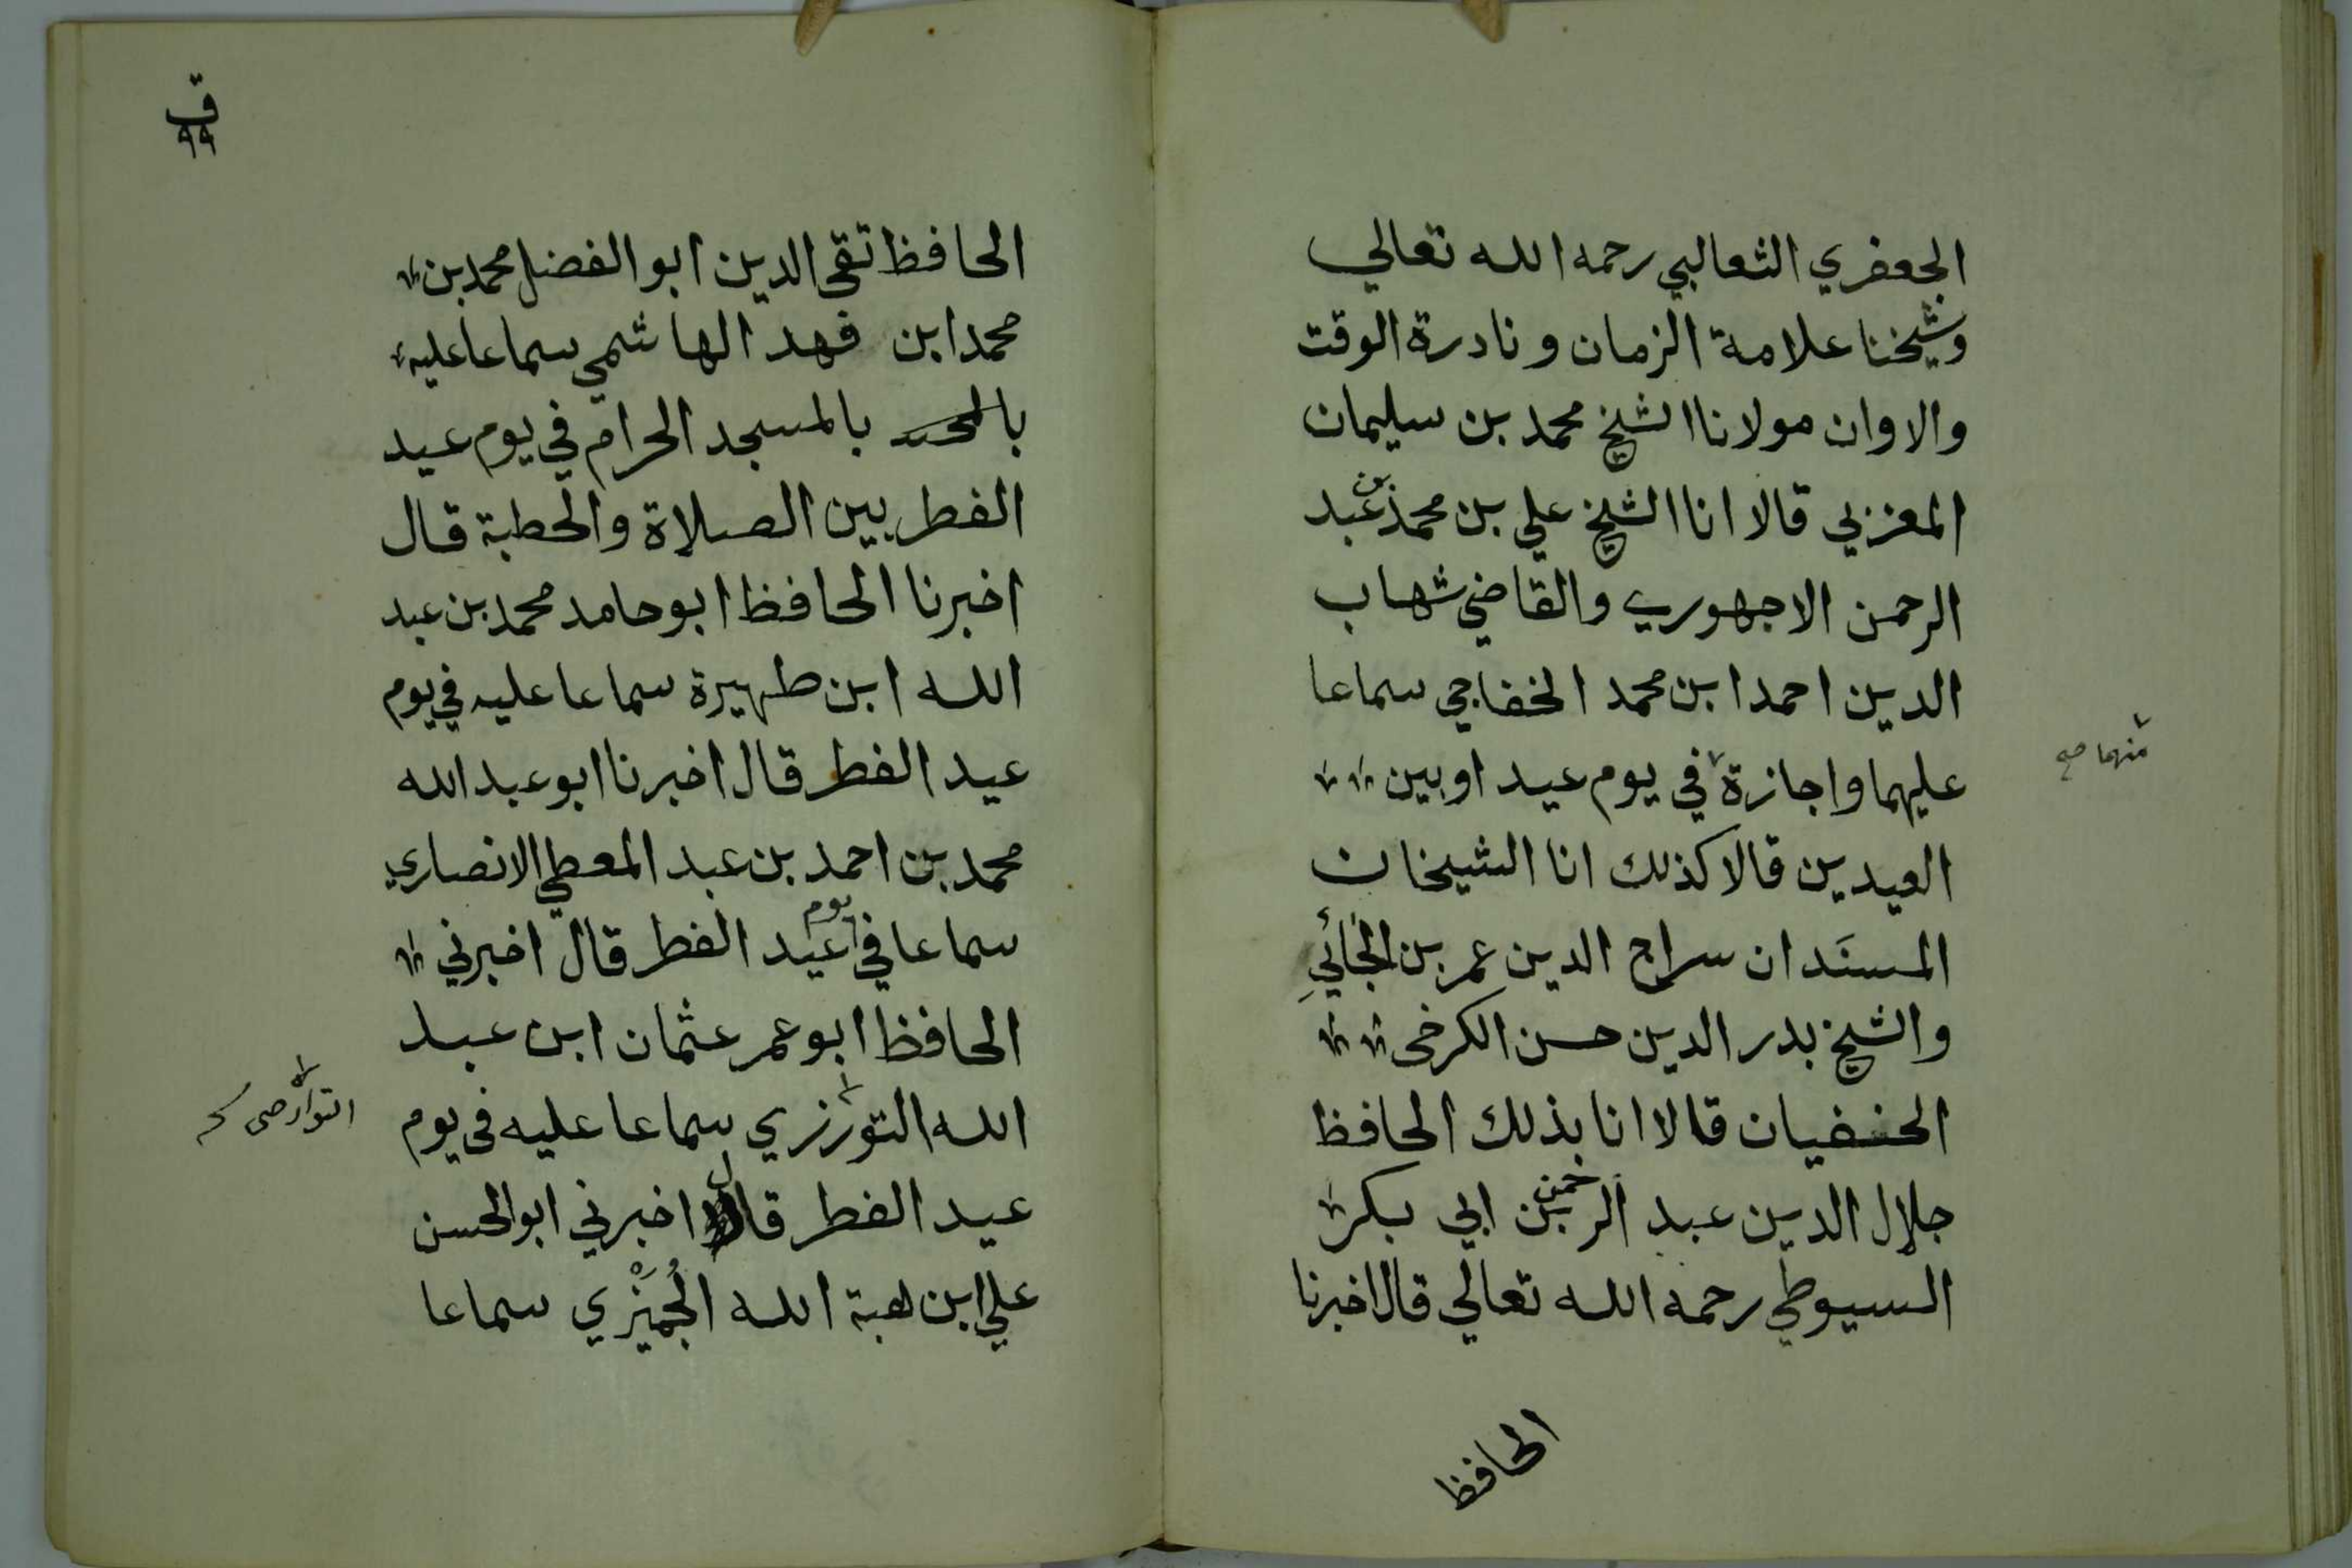 الجعفري الثعالبي رحمه الله تعالي
وشيخنا علامة الزمان ونادرة الوقت
والاوان مولانا الشيخ محمد بن سليمان
المغزبي قالا انا الشيخ علي بن محمد بن عبد
الرحمن الاجهوري والقاضي شهاب
الدين احمد ابن محمد الخفاجي سماعا
عليهما واجازة في يوم عيد او بين
منهما صح
العيدين قالا كذلك انا الشيخان
المسنَدان سراج الدين عمر بن الجَائي
والشيخ بدر الدين حسن الكرخى
الحنفيان قالا انا بذلك الحافظ
جلال الدين عبد الرحمن بن ابي بكر
السيوطي رحمه الله تعالي قال اخبرنا
الحافظ
ق
٩٩
الحافظ تقي الدين ابو الفضل محمد بن
محمد ابن فهد الهاشمي سماعا عليه
بالمسجد الحرام في يوم عيد
الفطر بين الصلاة والخطبة قال
اخبرنا الحافظ ابو حامد محمد بن عبد
الله ابن ظهيرة سماعا عليه في يوم
عيد الفطر قال اخبرنا ابو عبد الله
محمد بن احمد بن عبد المعطي الانصاري
سماعا في يوم عيد الفطر قال اخبرني
الحافظ ابو عمر عثمان ابن عبد
الله التورزري سماعا عليه فى يوم
عيد الفطر قال اخبرني ابو الحسن
علي ابن هبة الله الجُمَّيْزي سماعا